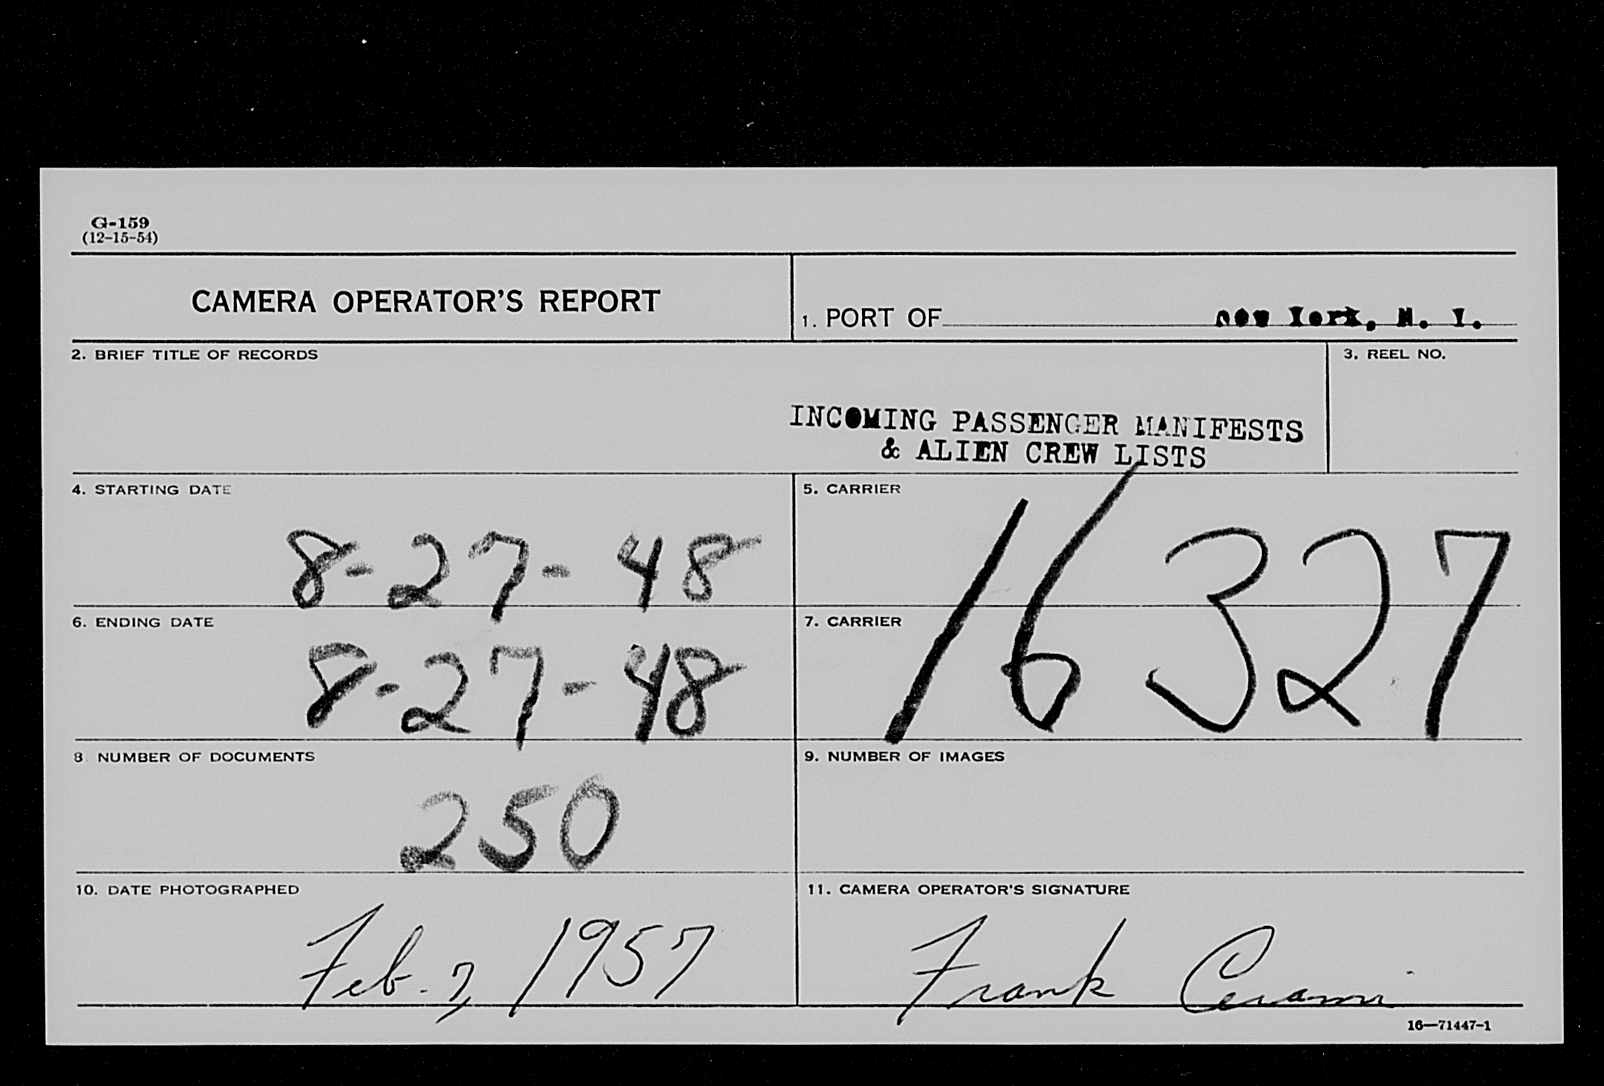 G-159
(12-15-54)
CAMERA OPERATOR'S REPORT
1. PORT OF New York, N. Y.
2. BRIEF TITLE OF RECORDS
3. REEL NO.
INCOMING PASSENGER MANIFESTS
& ALIEN CREW LISTS
4. STARTING DATE
8-27-48
5. CARRIER
16327
6. ENDING DATE
8-27-48
7. CARRIER
8 NUMBER OF DOCUMENTS
250
9. NUMBER OF IMAGES
10. DATE PHOTOGRAPHED
Feb. 7, 1957
11. CAMERA OPERATOR'S SIGNATURE
Frank
16—71447-1